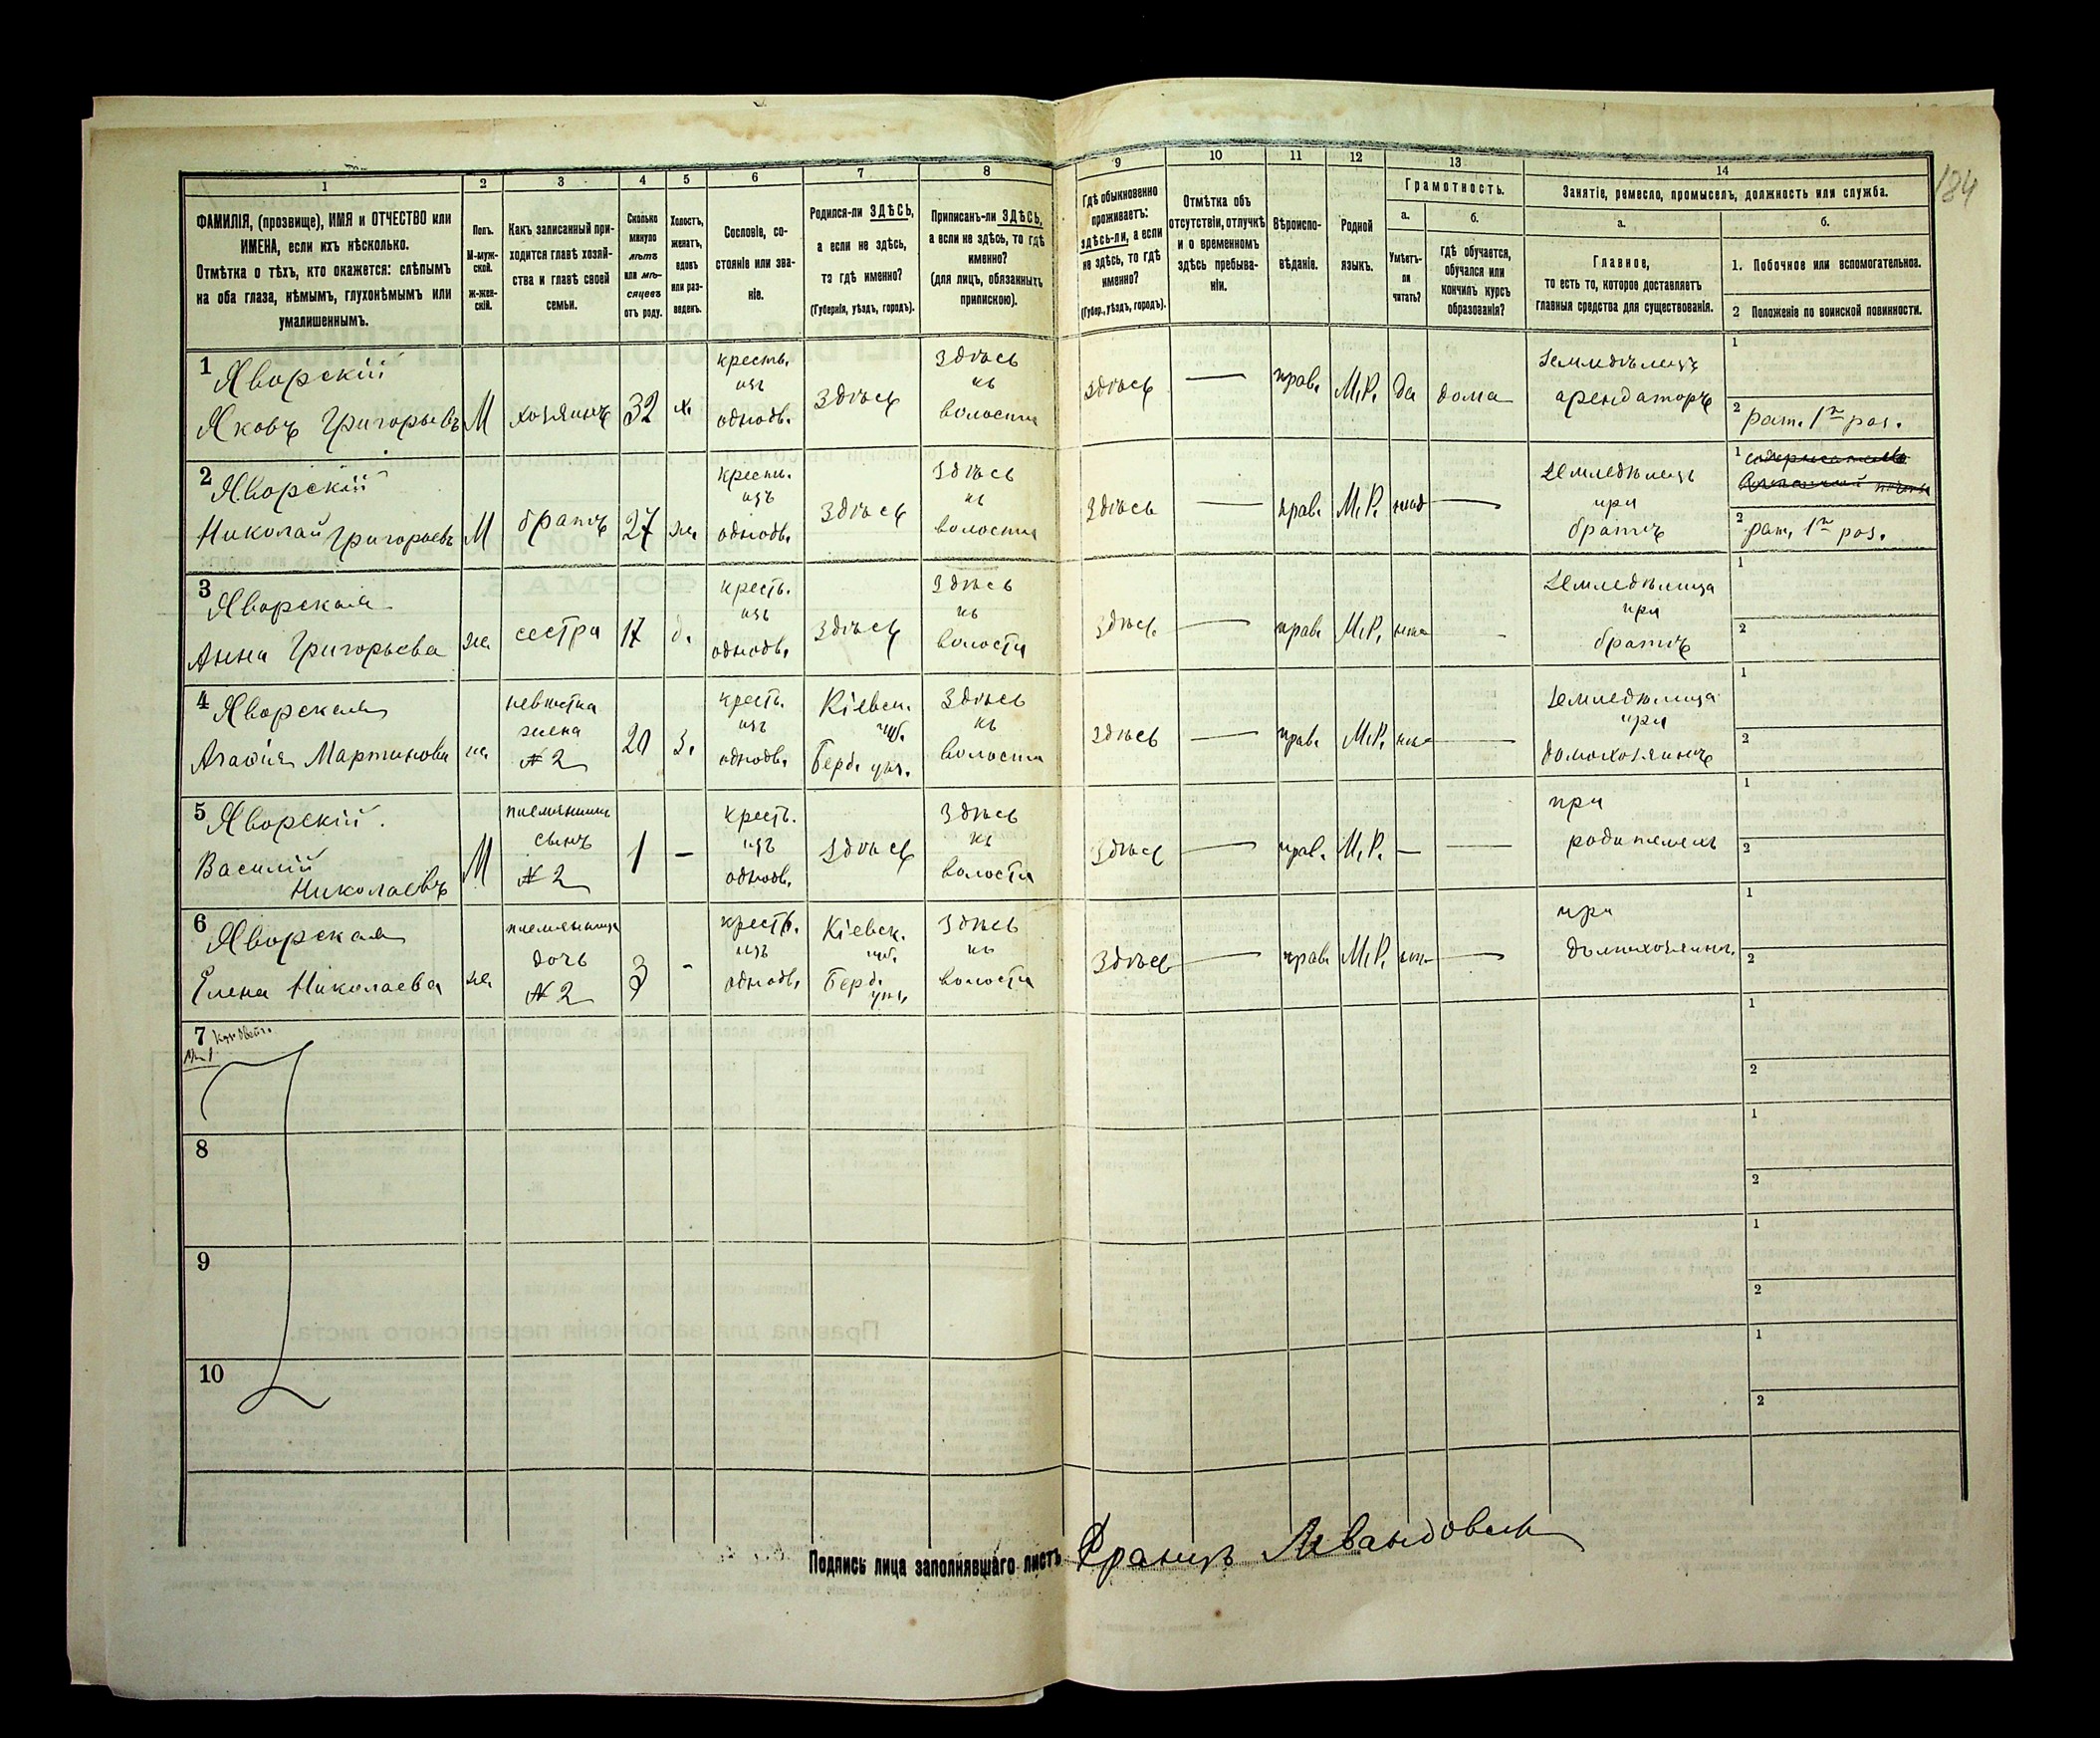 184
1 2 3 4 5 6 7 8 9 10 11 12 13 14
ФАМИЛІЯ, (прозвище), ИМЯ и ОТЧЕСТВО или
ИМЕНА, если ихъ нѣсколько.
Отмѣтка о тѣхъ, кто окажется: слѣпымъ
на оба глаза, нѣмымъ, глухонѣмымъ или
умалишеннымъ.
Полъ.
М-муж-
ской.
ж-жен-
скій.
Какъ записанный при-
ходится главѣ хозяй-
ства и главѣ своей
семьи.
Сколько
минуло
лѣтъ
или мѣ-
сяцевъ
отъ роду.
Холостъ,
женатъ,
вдовъ
или раз-
веденъ.
Сословіе, со-
стояніе или зва-
ніе.
Родился-ли ЗДѢСЬ,
а если не здѣсь,
то гдѣ именно?
(Губернія, уѣздъ, городъ).
Приписанъ-ли ЗДѢСЬ,
а если не здѣсь, то гдѣ
именно?
(для лицъ, обязанныхъ
припискою).
Гдѣ обыкновенно
проживаетъ:
здѣсь-ли, а если
не здѣсь, то гдѣ
именно?
(Губер., уѣздъ, городъ).
Отмѣтка объ
отсутствіи, отлучкѣ
и о временномъ
здѣсь пребыва-
ніи.
Вѣроиспо-
вѣданіе.
Родной
языкъ.
Грамотность.
а.
Умѣетъ-
ли
читать?
б.
гдѣ обучается,
обучался или
кончилъ курсъ
образованія?
Занятіе, ремесло, промыселъ, должность или служба.
а.
Главное,
то есть то, которое доставляетъ
главныя средства для существованія.
б.
1. Побочное или вспомогательное.
2 Положеніе по воинской повинности.
1
Яворскій
Яковъ Григорьевъ
М
хозяинъ
32
х.
кресть.
изъ
однодв.
Здѣсь
Здѣсь
къ
волости
Здѣсь
—
прав.
М.Р.
да
дома
Земледѣлецъ
арендаторъ
1
2 рат. 1го раз.
2
Яворскій
Николай Григорьевъ
М
братъ
27
ж.
кресть.
изъ
однодв.
Здѣсь
Здѣсь
къ
волости
Здѣсь
—
прав.
М.Р.
—
Земледѣлецъ
при
братѣ
1
2 рат. 1го раз.
3
Яворская
Анна Григорьева
ж.
сестра
17
д.
кресть.
изъ
однодв.
Здѣсь
Здѣсь
къ
волости
Здѣсь
—
прав.
М.Р.
-
Земледѣлица
при
братѣ
1
2
4
Яворская
Агафія Мартинова
ж.
невѣстка
жена
№ 2
20
з.
кресть.
изъ
однодв.
Кіевск.
губ.
Берд. уѣз.
Здѣсь
къ
волости
Здѣсь
—
прав.
М.Р.
—
Земледѣлица
при
домохозяинѣ
1
2
5
Яворскій.
Василій
Николаевъ
М
племянникъ
сынъ
№ 2
1
—
кресть.
изъ
однодв.
Здѣсь
Здѣсь
къ
волости
Здѣсь
—
прав.
М.Р.
—
—
при
родителехъ
1
2
6
Яворская
Елена Николаева
ж.
племянница
дочь
№ 2
3
-
кресть.
изъ
однодв.
Кіевск.
губ.
Берд.
уѣз.
Здѣсь
къ
волости
Здѣсь
—
прав.
М.Р.
—
при
домохозяинѣ.
1
2
7
1
2
8
1
2
9
1
2
10
1
2
Подпись лица заполнявшаго листъ Францъ Левандовск